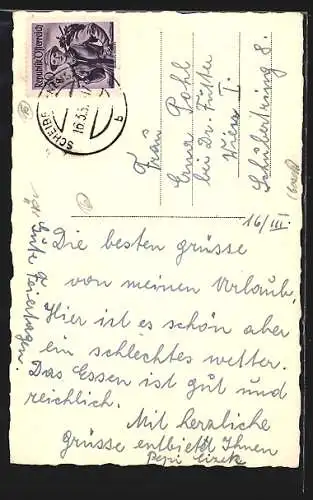 Republik Österreich
SCHEIBBS
16.3.5
b
Frau
Erna Pohl
bei Dr. Füster
Wien I.
Schubertring 8.
16/III.
Die besten grüsse
von meinen Urlaub.
Hier ist es schön aber
ein schlechtes wetter.
Das Essen ist gut und
reichlich.
Mit herzliche
grüsse entbietet Ihnen
Pepi Cizek
Gute
Feiertagen.